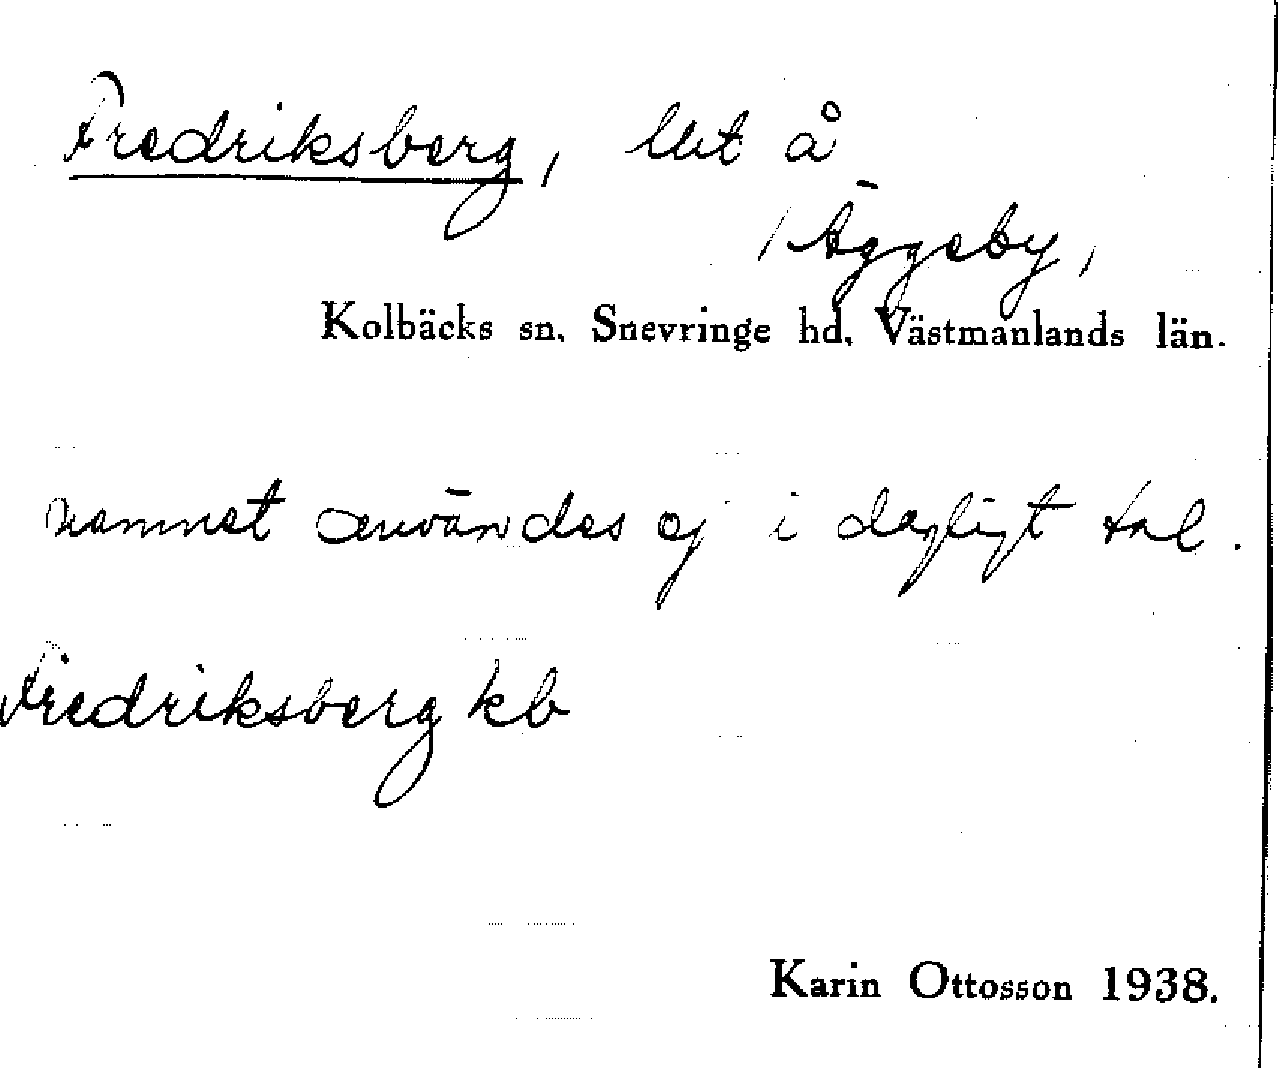 Fredriksberg, lht å
Äggeby,
Kolbäcks sn. Snevringe hd. Västmanlands län.
namnet användes ej i dagligt tal.
Fredriksberg kb
Karin Ottosson 1938.